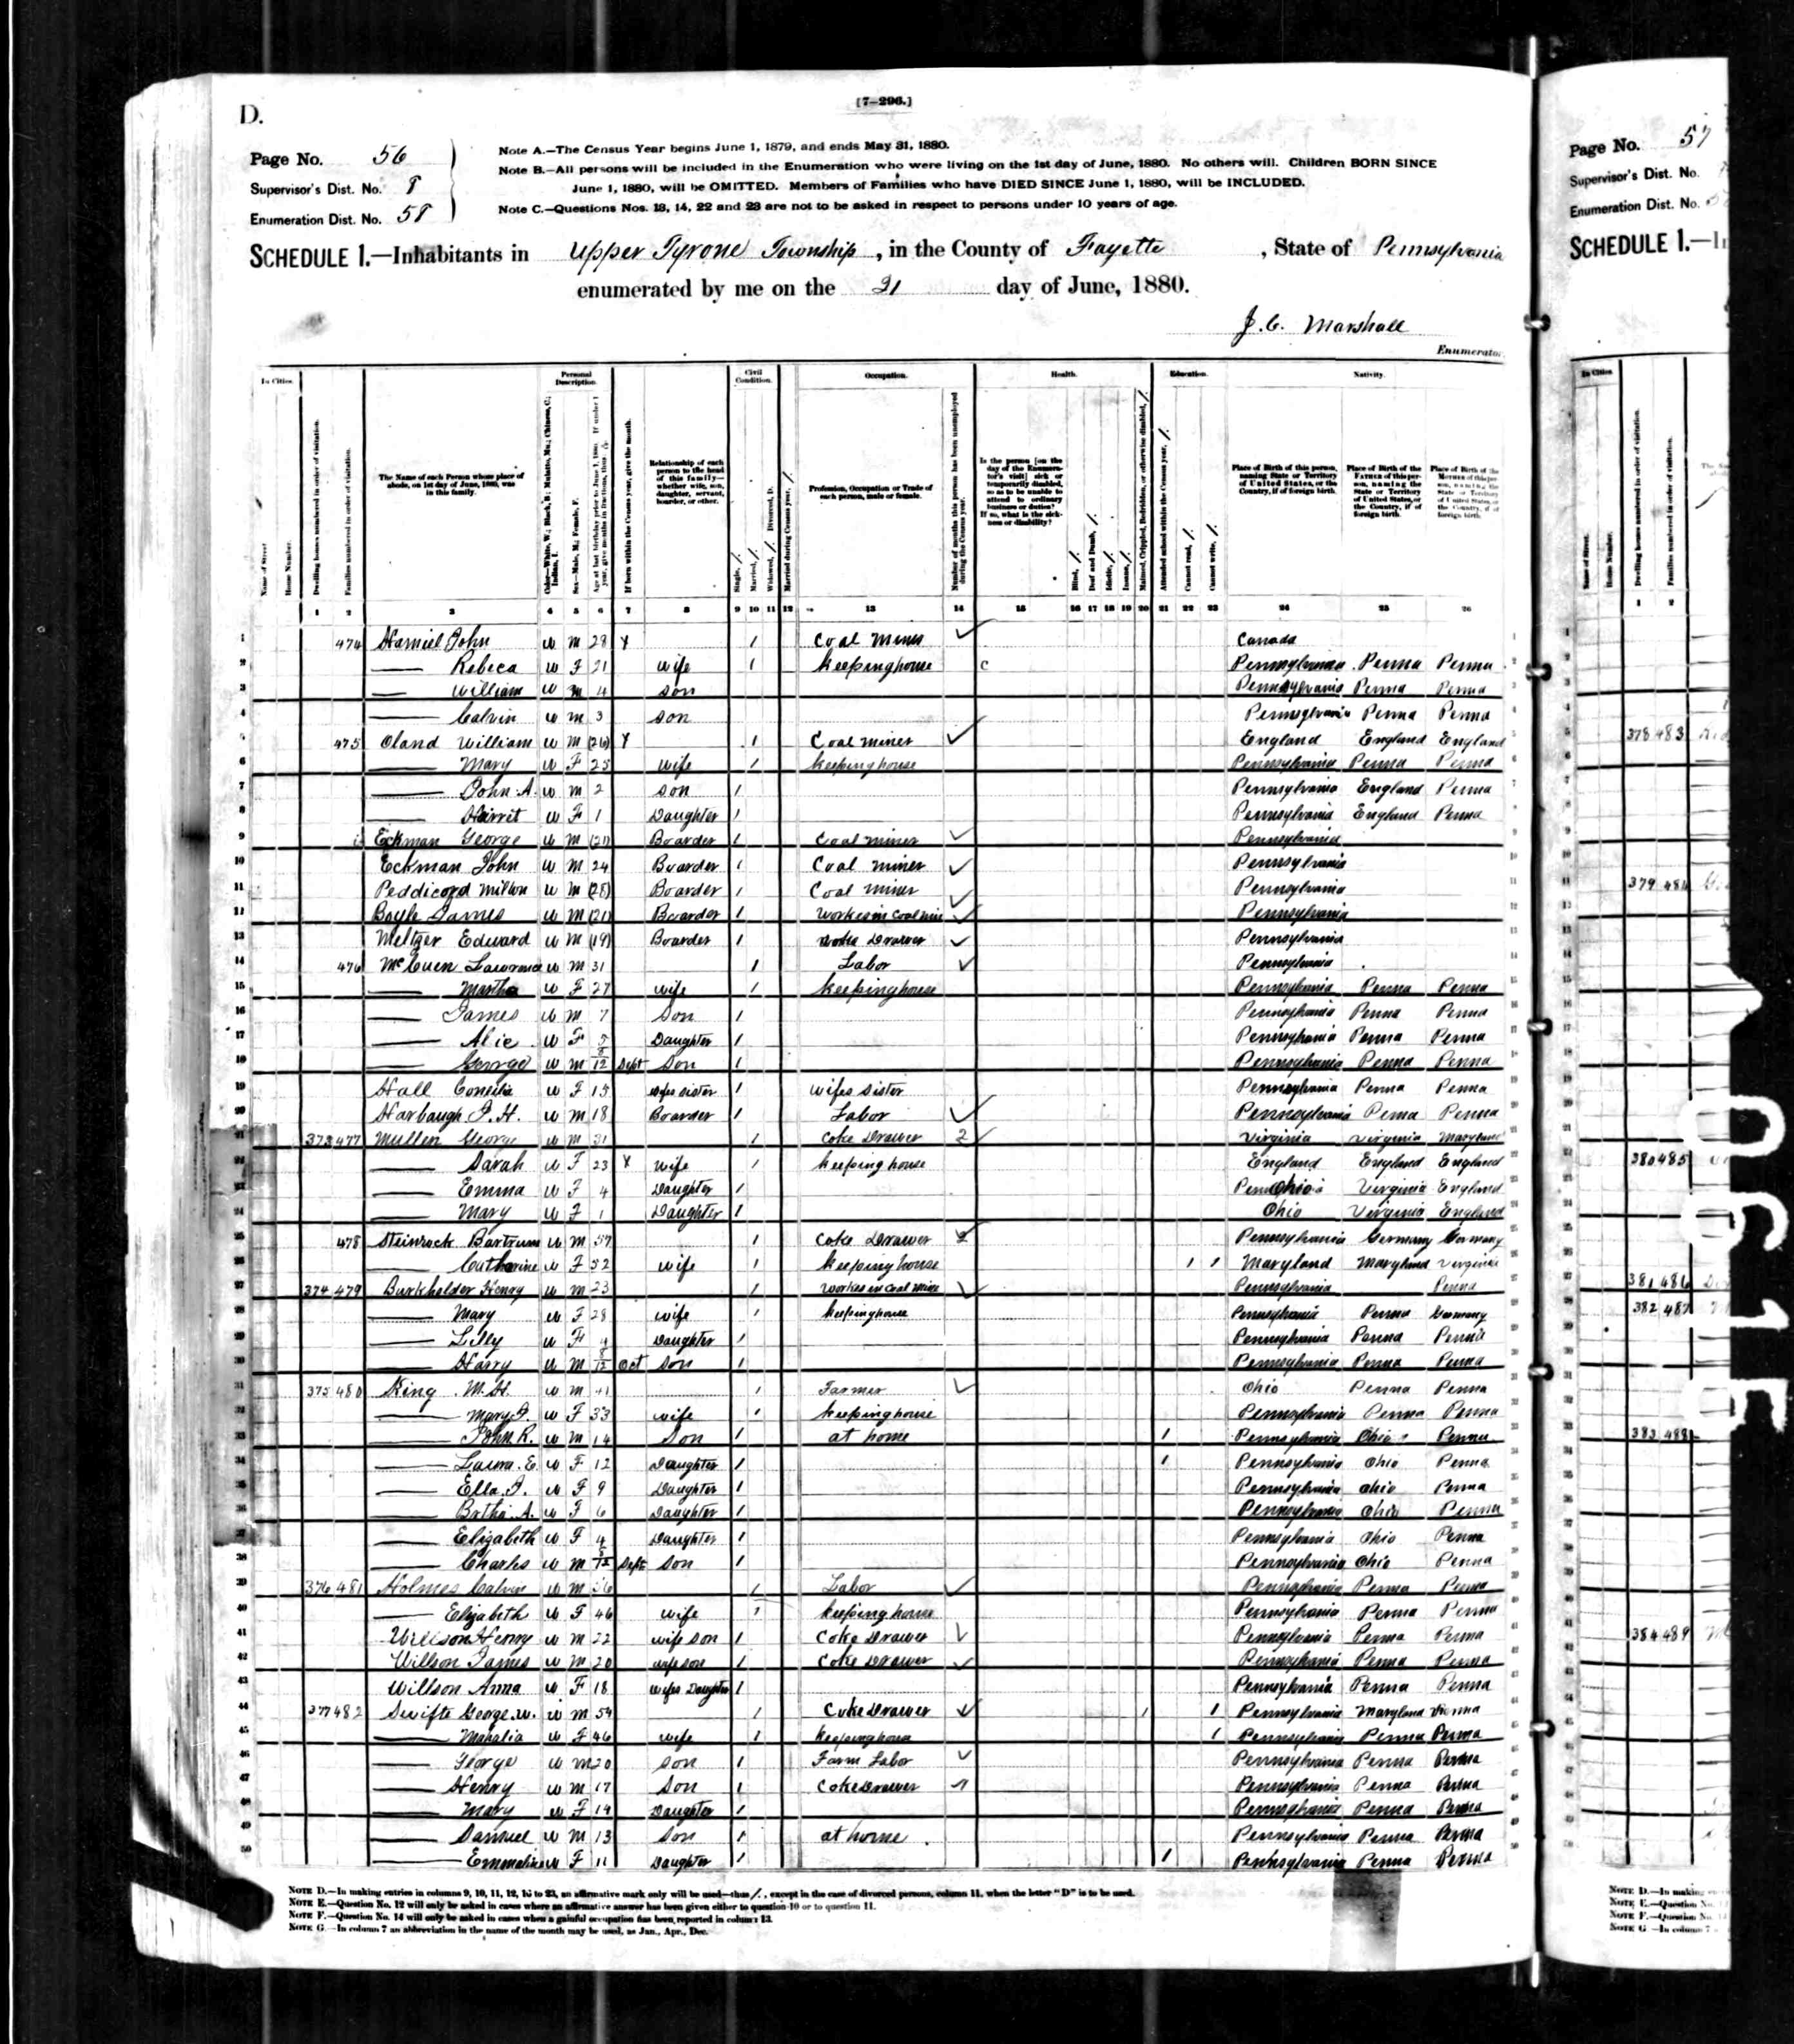 D.
[7-296.]
Page No. 56
Supervisor's Dist. No. 8
Enumeration Dist. No. 58
Note A.—The Census Year begins June 1, 1879, and ends May 31, 1880.
Note B.—All persons will be included in the Enumeration who were living on the 1st day of June, 1880. No others will. Children BORN SINCE
June 1, 1880, will be OMITTED. Members of Families who have DIED SINCE June 1, 1880, will be INCLUDED.
Note C.—Questions Nos. 13, 14, 22 and 23 are not to be asked in respect to persons under 10 years of age.
SCHEDULE 1.—Inhabitants in Upper Tyrone Township, in the County of Fayette, State of Pennsylvania
enumerated by me on the 21 day of June, 1880.
J. C. Marshall
Enumerator
In Cities. Personal Description. Civil Condition. Occupation. Health. Education. Nativity.
The Name of each Person whose place of abode, on 1st day of June, 1880, was in this family.
Relationship of each person to the head of this family—whether wife, son, daughter, servant, boarder, or other.
Profession, Occupation or Trade of each person, male or female.
1 2 3 4 5 6 7 8 9 10 11 12 13 14 15 16 17 18 19 20 21 22 23 24 25 26
1 474 John W M 28 Y 1 Coal Miner Canada
2 — Rebeca W F 21 wife 1 keeping house c Pennsylvania Penna Penna
3 — William W M 4 son Pennsylvania Penna Penna
4 — Calvin W M 3 son Pennsylvania Penna Penna
5 475 Oland William W M (26) Y 1 Coal miner England England England
6 — Mary W F 25 wife 1 keeping house Pennsylvania Penna Penna
7 — John A. W M 2 son 1 Pennsylvania England Penna
8 — Harrit W F 1 Daughter 1 Pennsylvania England Penna
9 Eckman George W M (21) Boarder 1 Coal miner Pennsylvania
10 Eckman John W M 24 Boarder 1 Coal miner Pennsylvania
11 Peddicord Milton W M (28) Boarder 1 Coal miner Pennsylvania
12 Boyle James W M (21) Boarder 1 Works in Coal mine Pennsylvania
13 Meltzer Edward W M (19) Boarder 1 Coke Drawer Pennsylvania
14 476 McCuen Lawrence W M 31 1 Labor Pennsylvania
15 — Martha W F 27 wife 1 keeping house Pennsylvania Penna Penna
16 — James W M 7 Son 1 Pennsylvania Penna Penna
17 — Alie W F 5 Daughter 1 Pennsylvania Penna Penna
18 — George W M 8/12 Sept Son 1 Pennsylvania Penna Penna
19 Hall W F 15 wifes sister 1 wifes sister Pennsylvania Penna Penna
20 Harbaugh J. H. W M 18 Boarder 1 Labor Pennsylvania Penna Penna
21 373 477 Mullen George W M 31 1 Coke Drawer 2 Virginia Virginia Maryland
22 — Sarah W F 23 Y wife 1 keeping house England England England
23 — Emma W F 4 Daughter 1 Ohio Virginia England
24 — Mary W F 1 Daughter 1 Ohio Virginia England
25 478 Steinrock Bartrum W M 57 1 Coke Drawer Pennsylvania Germany Germany
26 — Catharine W F 52 wife 1 keeping house 1 1 Maryland Maryland Virginia
27 374 479 Burkholder Henry W M 23 1 Works in Coal mine Pennsylvania Penna
28 — Mary W F 28 wife 1 keeping house Pennsylvania Penna Germany
29 — Lilly W F 4 Daughter 1 Pennsylvania Penna Penna
30 — Harry W M 8/12 Oct Son 1 Pennsylvania Penna Penna
31 375 480 King M. H. W M 41 1 Farmer Ohio Penna Penna
32 — Mary J. W F 33 wife 1 keeping house Pennsylvania Penna Penna
33 — John R. W M 14 Son 1 at home 1 Pennsylvania Ohio Penna
34 — Laura E. W F 12 Daughter 1 1 Pennsylvania Ohio Penna
35 — Ella J. W F 9 Daughter 1 Pennsylvania Ohio Penna
36 — Brtha A. W F 6 Daughter 1 Pennsylvania Ohio Penna
37 — Elizabeth W F 4 Daughter 1 Pennsylvania Ohio Penna
38 — Charles W M Sept Son 1 Pennsylvania Ohio Penna
39 376 481 Holmes Calvin W M 36 1 Labor Pennsylvania Penna Penna
40 — Elizabeth W F 46 wife 1 keeping house Pennsylvania Penna Penna
41 Willson Henry W M 22 wife son 1 Coke Drawer Pennsylvania Penna Penna
42 Wilson James W M 20 wife son 1 Coke Drawer Pennsylvania Penna Penna
43 Willson Anna W F 18 wifes Daughter 1 Pennsylvania Penna Penna
44 377 482 Swifte George W. W M 54 1 Coke Drawer 1 1 Pennsylvania Maryland Penna
45 — Mahalia W F 46 wife 1 keeping house 1 Pennsylvania Penna Penna
46 — George W M 20 Son 1 Farm Labor Pennsylvania Penna Penna
47 — Henry W M 17 Son 1 Coke Drawer Pennsylvania Penna Penna
48 — Mary W F 14 Daughter 1 Pennsylvania Penna Penna
49 — Samuel W M 13 Son 1 at home Pennsylvania Penna Penna
50 — Emmaline W F 11 Daughter 1 1 Pennsylvania Penna Penna
NOTE D.—In making entries in columns 9, 10, 11, 12, 16 to 23, an affirmative mark only will be used—thus /, except in the case of divorced persons, column 11, when the letter "D" is to be used.
NOTE E.—Question No. 12 will only be asked in cases where an affirmative answer has been given either to question 10 or to question 11.
NOTE F.—Question No. 14 will only be asked in cases when a gainful occupation has been reported in column 13.
NOTE G.—In column 7 an abbreviation in the name of the month may be used, as Jan., Apr., Dec.
Page No. 57
Supervisor's Dist. No.
Enumeration Dist. No.
SCHEDULE 1.—I
In Cities
378 483
379 484
380 485
381 486
382 487
383 488
384 489
0615
NOTE D.—In making
NOTE E.—Question No.
NOTE F.—Question No.
NOTE G.—In column 7